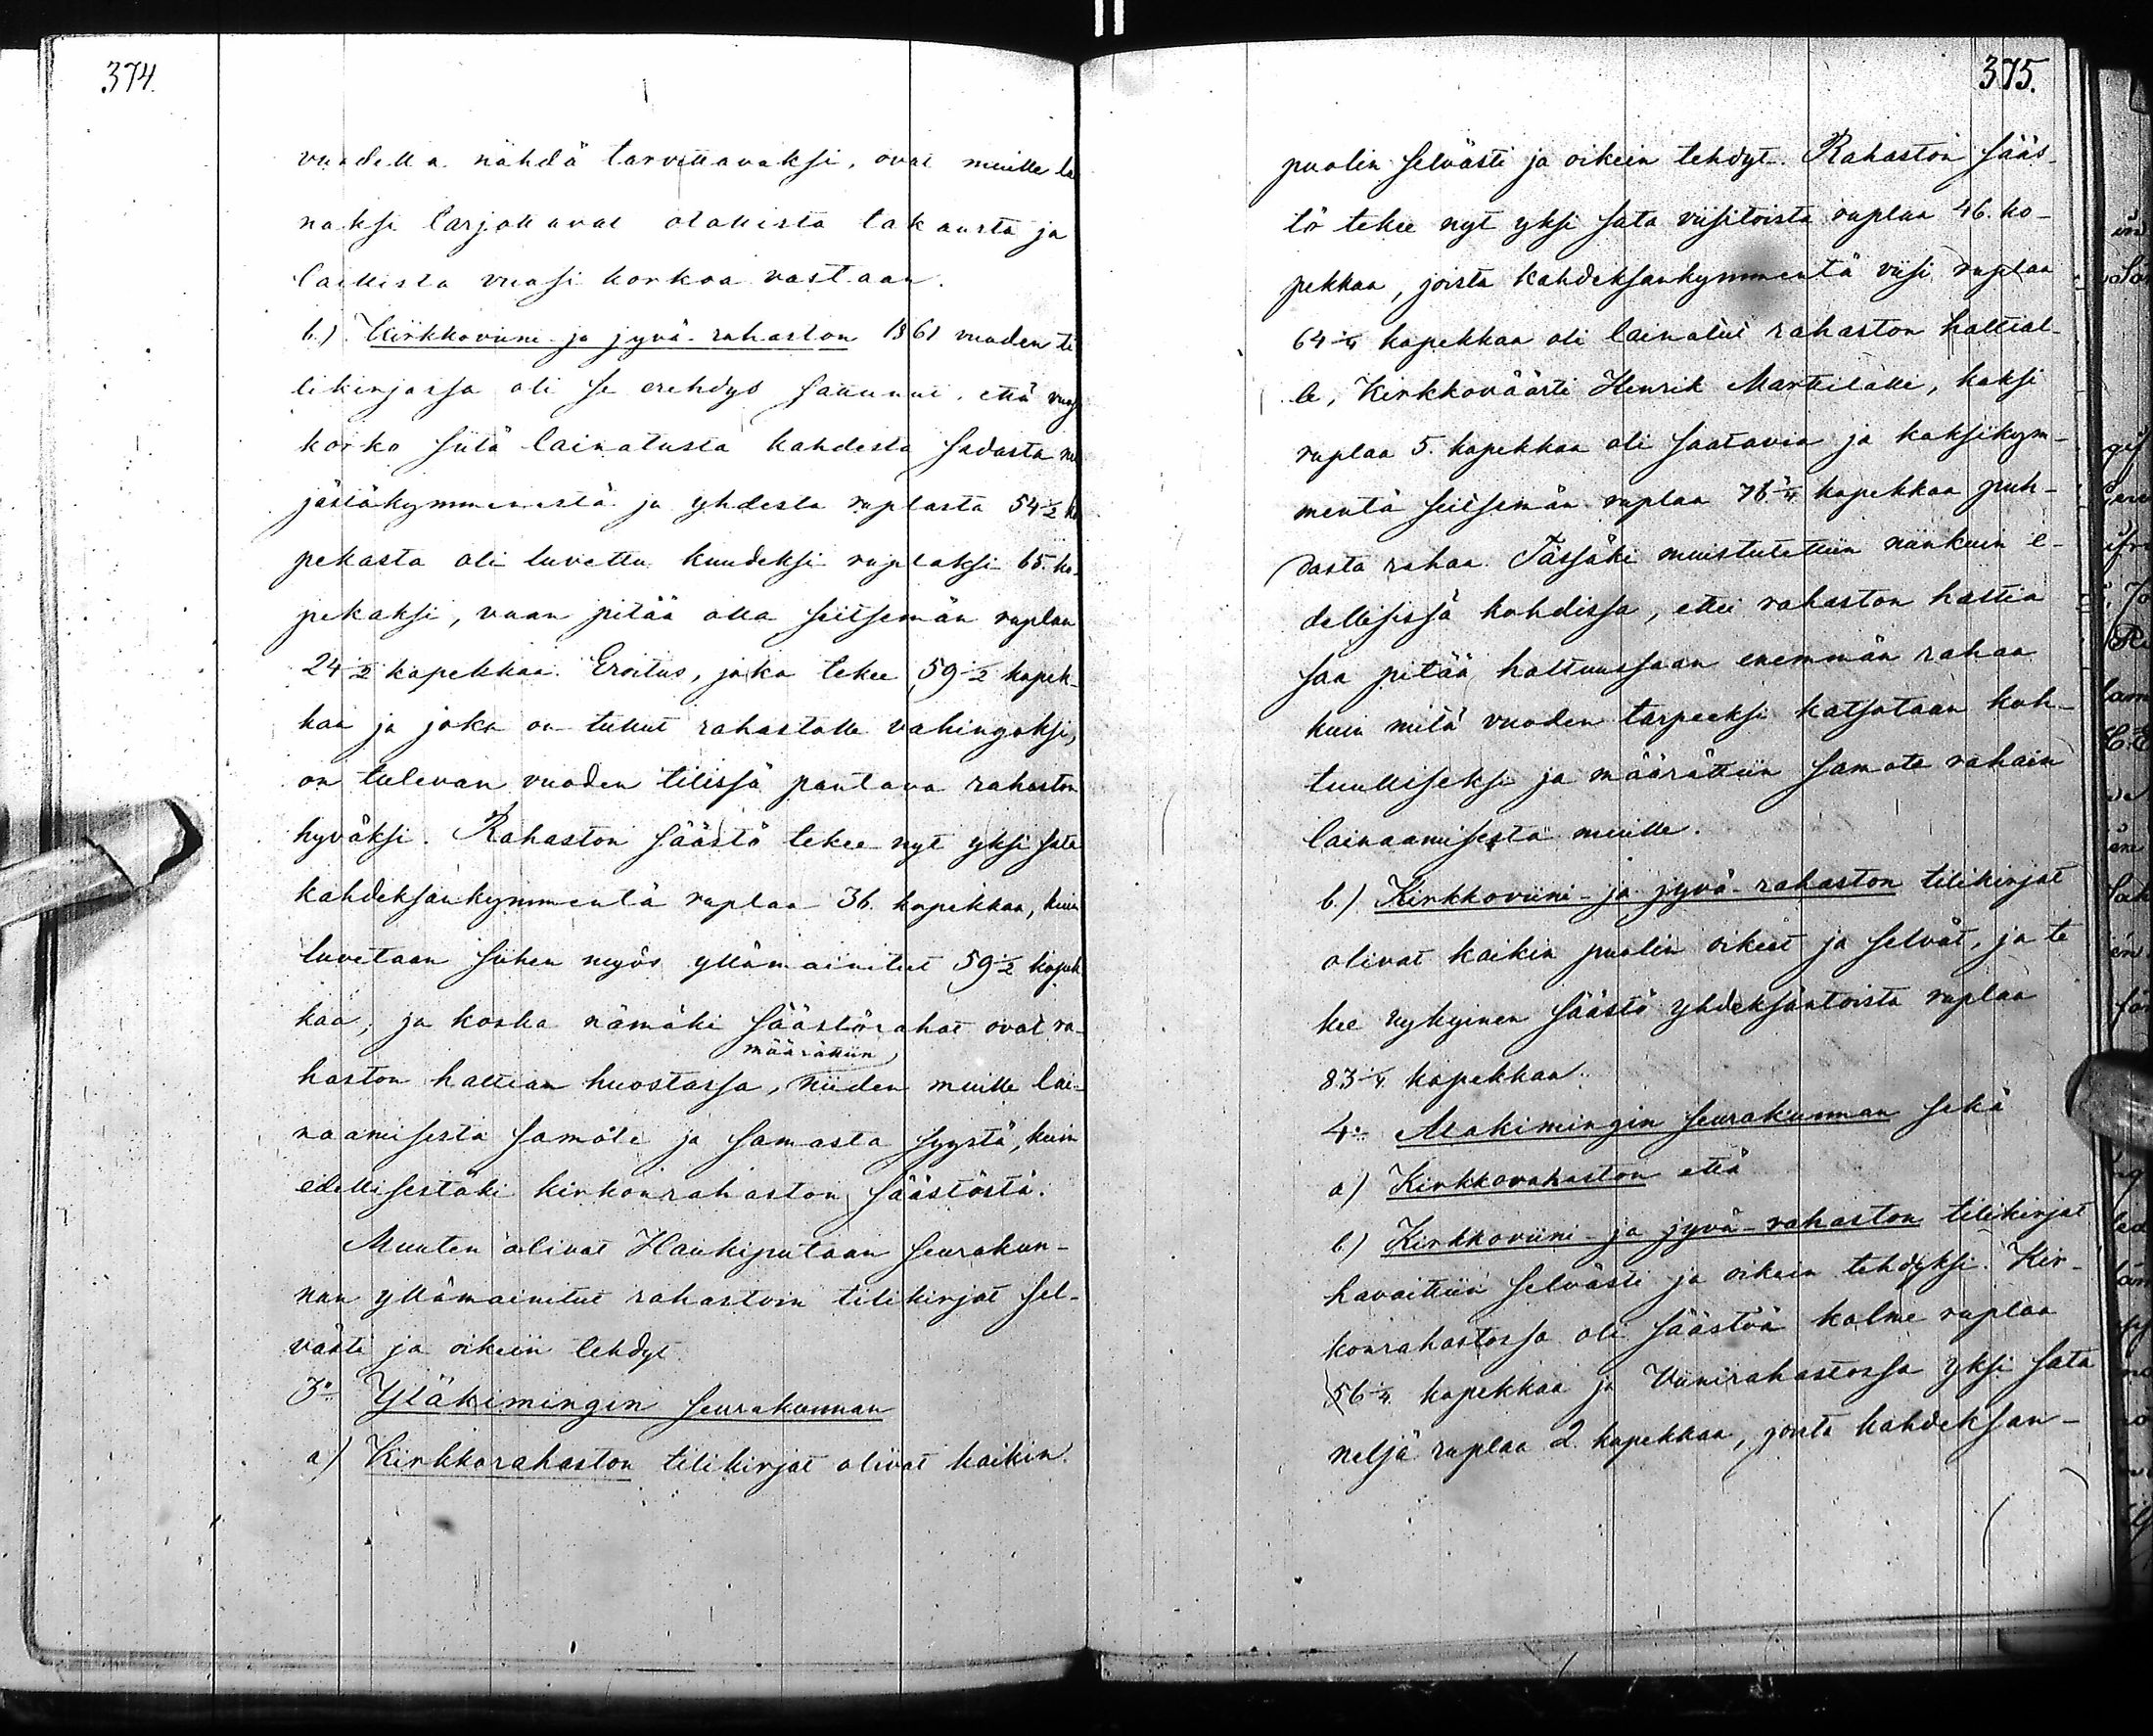 374.
vuodella nähdä tarvittavaksi, ovat muille la
naksi tarjottavat otollista takausta ja
laillista vuosi korkoa vastaan.
b.) Kirkkoviini- ja jyvä-rahaston 1861 vuoden ti
likirjassa oli se erehdys sattunut, että vuosi
korko siitä lainatusta kahdesta sadasta nel
jästäkymmenestä ja yhdestä ruplasta 54 1/2 ko
pekasta oli luvettu kuudeksi ruplaksi 65. ko-
pekaksi, vaan pitää olla seitsemän ruplaa
24 1/2 kopekkaa. Eroitus, joka tekee 59 1/2 kopek-
kaa ja joka on tullut rahastolle vahingoksi,
on tulevan vuoden tilissä pantava rahaston
hyväksi. Rahaston säästö tekee nyt yksi sata
kahdeksankymmentä ruplaa 36. kopekkaa, kuin
luvetaan siihen myös yllämainitut 59 1/2 kopek
kaa, ja koska nämäki säästörahat ovat ra-
määrättiin
haston haltian huostassa, niiden muille lai-
naamisesta samote ja samasta syystä, kuin
edellisestäki kirkonrahaston säästöstä.
Muuten olivat Haukiputaan seurakun-
nan yllämainitut rahastoin tilikirjat sel-
västi ja oikein tehdyt.
3:o Yläkimingin seurakunnan
a) Kirkkorahaston tilikirjat olivat kaikin
375.
puolin selvästi ja oikein tehdyt. Rahaston sääs-
tö tekee nyt yksi sata viisitoista ruplaa 46. ko-
pekkaa, joista kahdeksankymmentä viisi ruplaa
64 1/4 kopekkaa oli lainatut rahaston haltial-
le, Kirkkoväärti Henrik Marttilalle, kaksi
ruplaa 5. kopekkaa oli saatavia ja kaksikym-
mentä seitsemän ruplaa 76 3/4 kopekkaa puh-
dasta rahaa. Tässäki muistutettiin niinkuin e-
dellisissä kohdissa, ettei rahaston haltia
saa pitää haltuussaan enemmän rahaa
kuin mitä vuoden tarpeeksi katsotaan koh-
tuulliseksi ja määrättiin samate rahain
lainaamisesta muille.
b.) Kirkkoviini- ja jyvä-rahaston tilikirjat
olivat kaikin puolin oikeat ja selvät, ja te
kee nykyinen säästö yhdeksäntoista ruplaa
83 1/4 kopekkaa.
4:o Alakimingin seurakunnan sekä
a) Kirkkorahaston että
b.) Kirkkoviini- ja jyvä-rahaston tilikirjat
havaittiin selvästi ja oikein tehdyksi. Kir-
konrahastossa oli säästöä kolme ruplaa
56 1/4 kopekkaa ja Viinirahastossa yksi sata
neljä ruplaa 2 kopekkaa, joista kahdeksan-